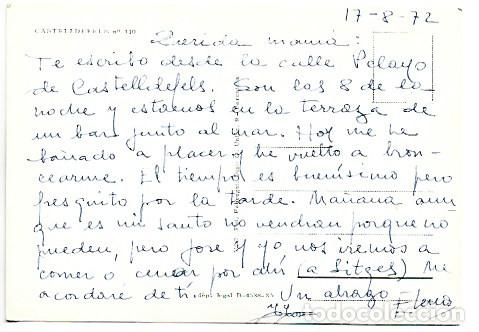 17-8-72
CASTELLDEFELS nº 130
Querida mamá:
Te escribo desde la calle Pelayo
de Castelldefels. Son las 8 de la
noche y estamos en la terraza de
un bar junto al mar. Hoy me he
bañado a placer y he vuelto a bron-
cearme. El tiempo es buenísimo pero
fresquito por la tarde. Mañana aun
que es mi santo no vendran porque no
pueden, pero Jose y yo nos iremos a
comer o cenar por ahí (a Sitges) Me
acordaré de ti. Un abrazo Elena
dep. legal B.
todocoleccion